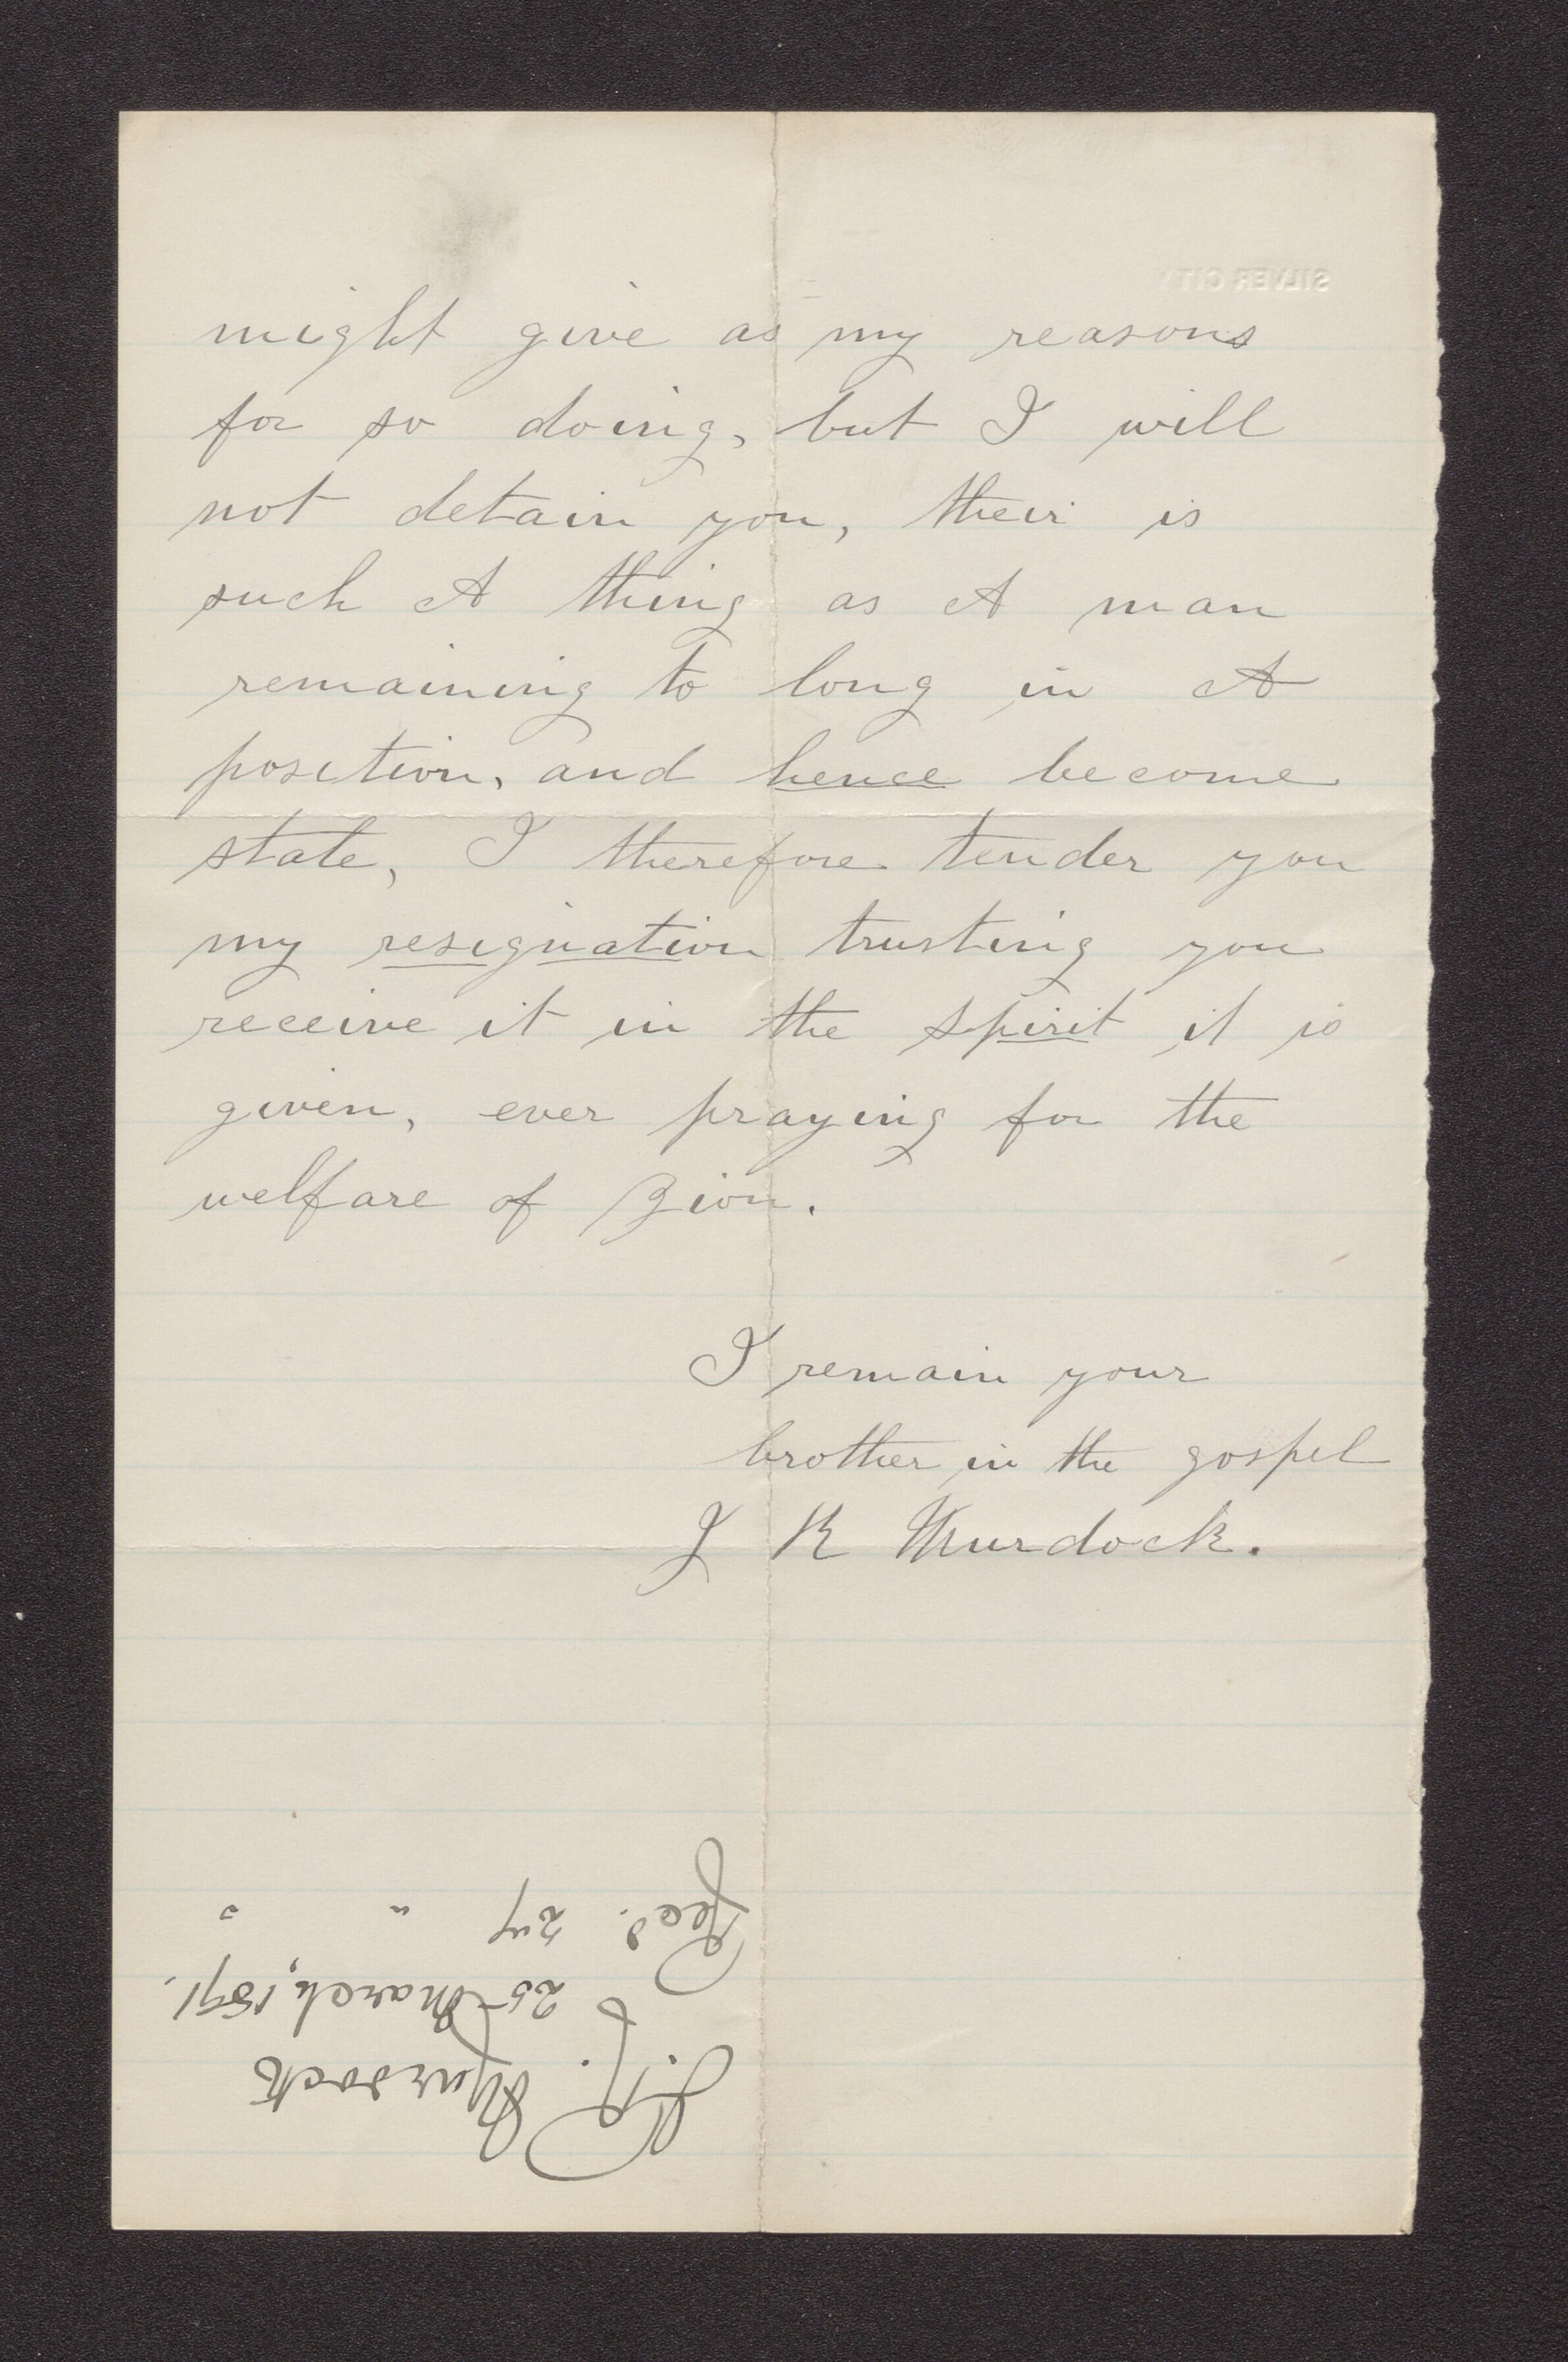 SILVER CITY
might give as my reasons
for so doing, but I will
not detain you, their is
such A thing as A man
remaining to long in A
position, and hence become
state, I therefore tender you
my resignation trusting you
receive it in the spirit it is
given, ever praying for the
welfare of Zion.
I remain your
brother in the gospel
J R Murdock.
J. R. Murdock
25 March, 1891.
Recd. 27 " "